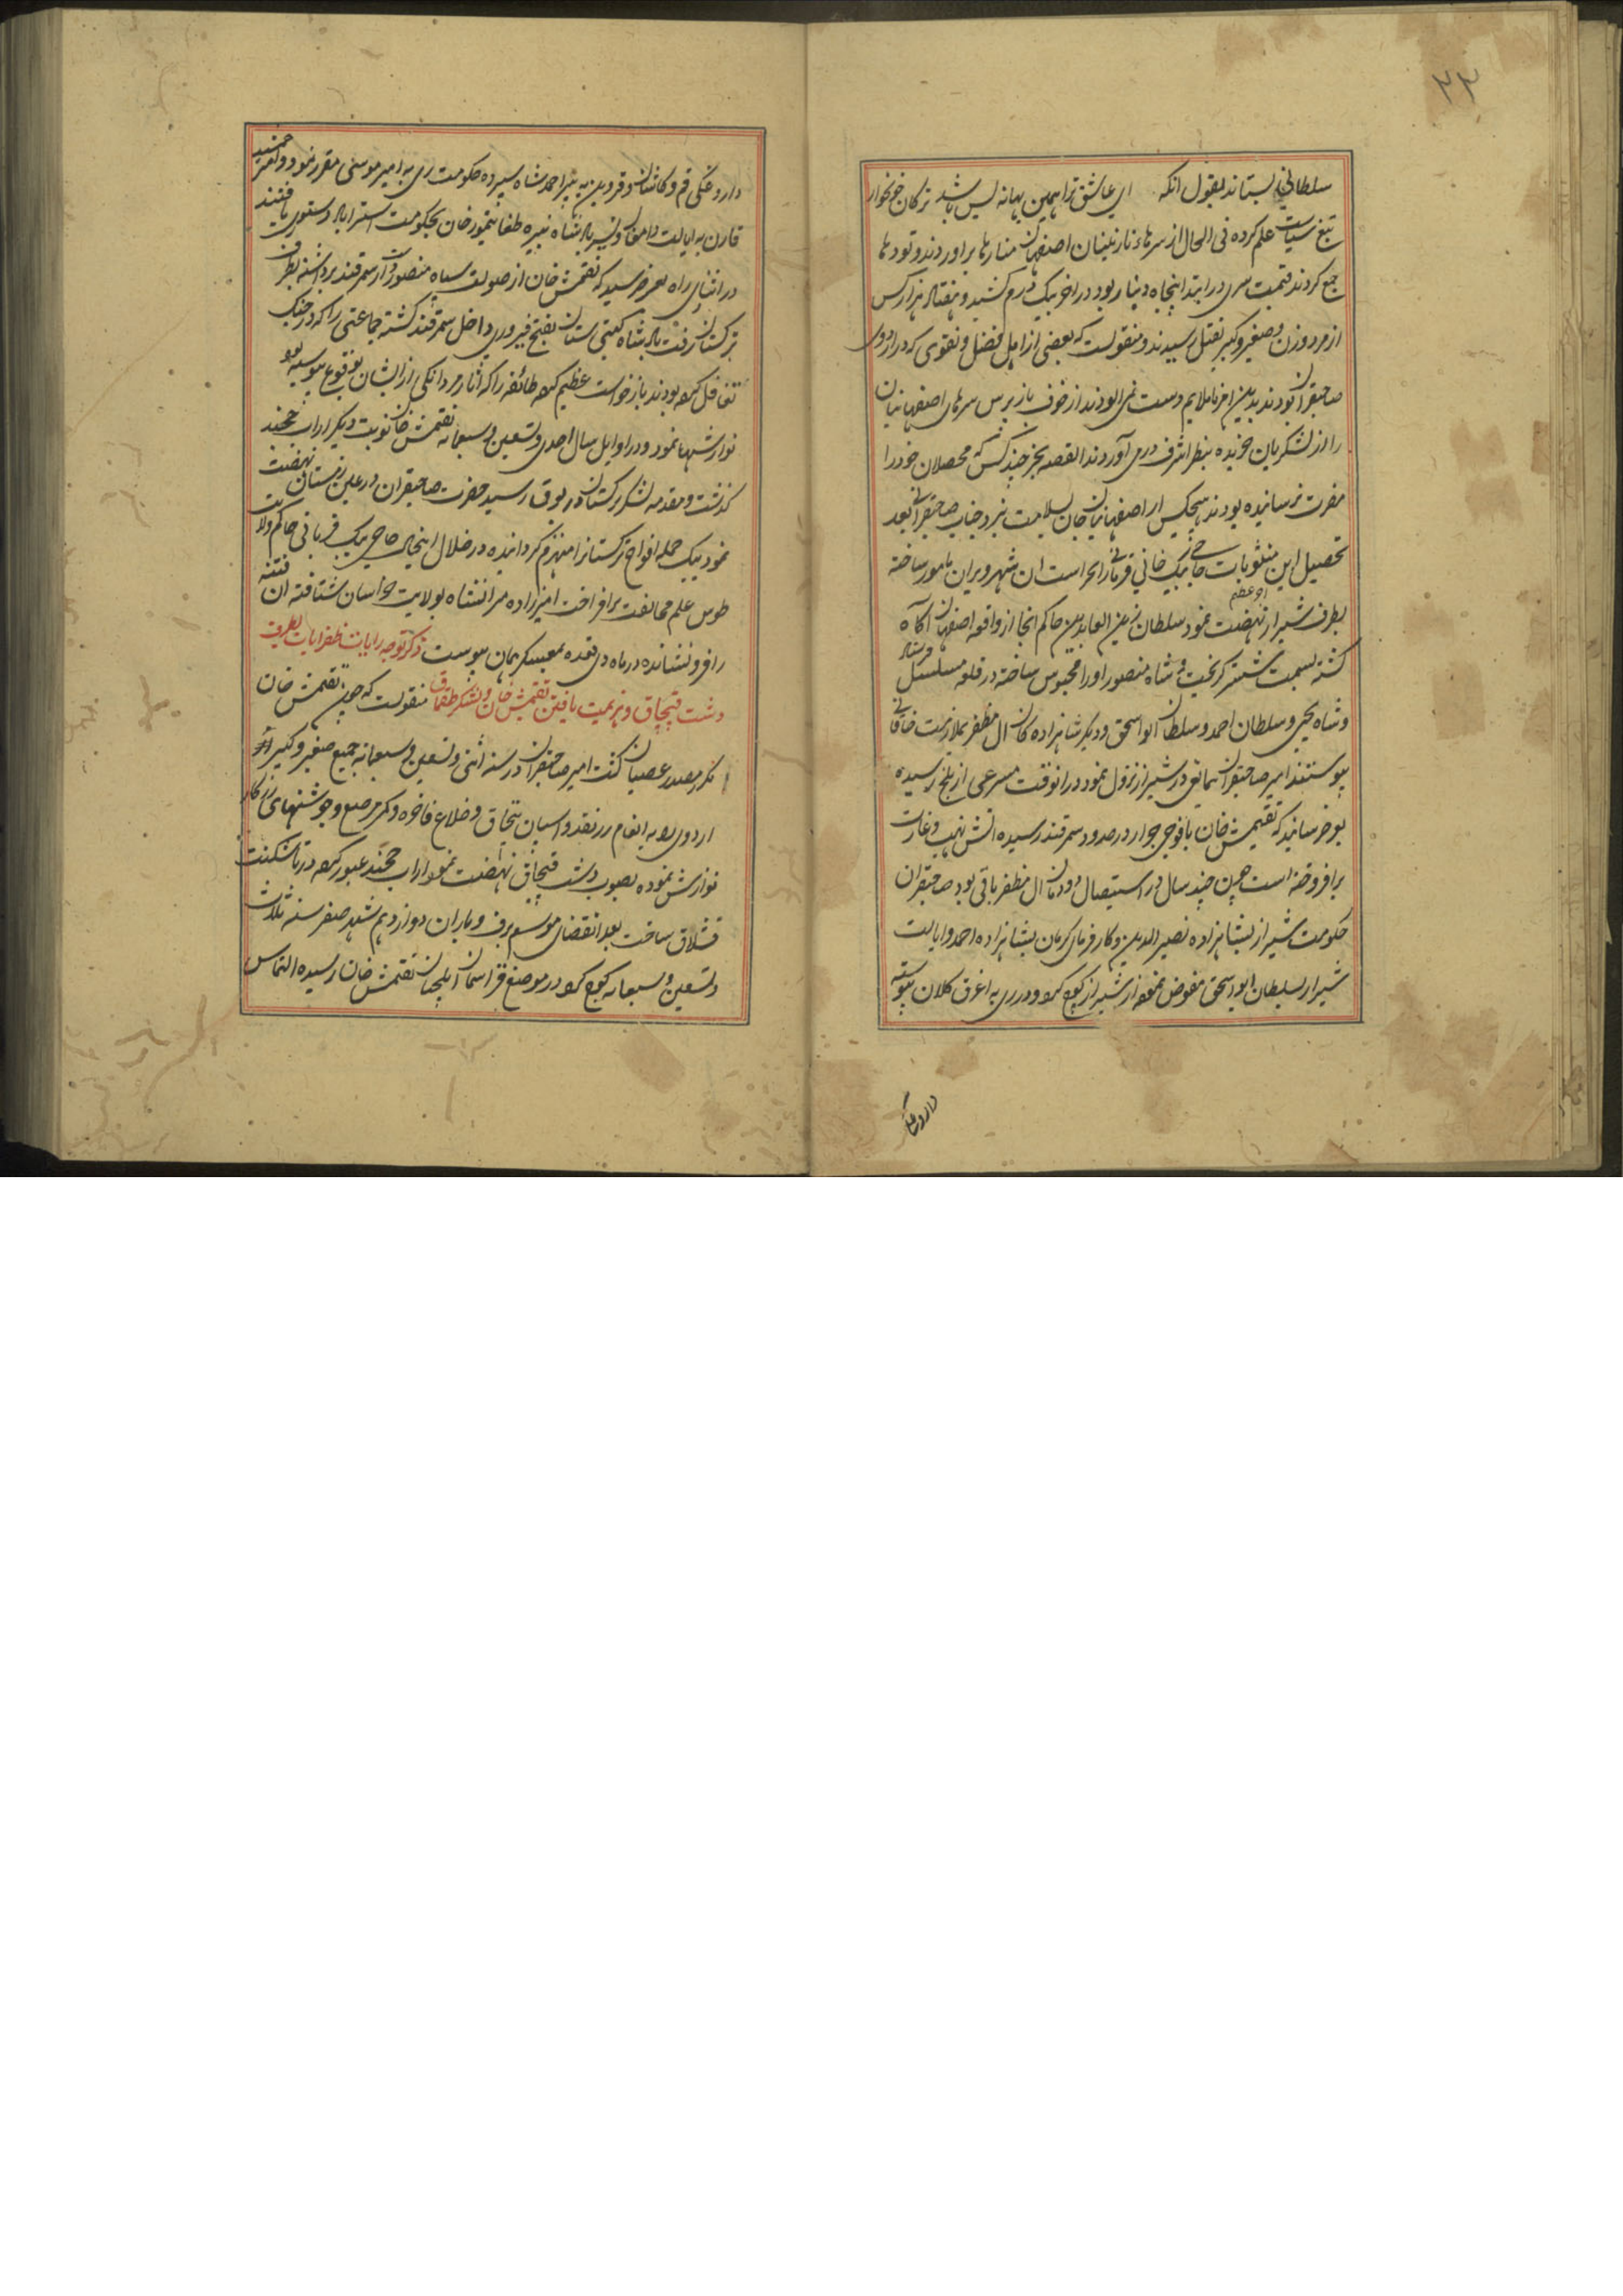 ۳۳
سلطانی بستاند بقول انکه ای عاشق ترا همین بهانه بس باشد ترکان خونخوار
تیغ سیاست علم کرده فی الحال از سرهاء نازنینان اصفهان منارها براوردند و تودها
جمع کردند قیمت سری در ابتدا پنجاه دینار بود در اخر بیک درم کشید و هفتاد هزار کس
از مرد و زن و صغیر و کبیر بقتل رسیدند و منقولست که بعضی از اهل فضل و تقوی که در اردوی
صاحبقران بودند بدین امر ناملایم دست نمی الودند از خوف باز پرس سرهای اصفهانیان
را از لشکریان خریده بنظر اشرف درمی آوردند القصه بجز چند کس که محصلان خود را
مضرت نرسانیده بودند هیچکس از اصفهانیان جان بسلامت نبرد جناب صاحبقرانی بعد
تحصیل این مثلوبات حاجی بیک خانی قربانی را بحراست ان شهر ویران مامور ساخته
بطرف شیراز نهضت نمود سلطان زین العابدین حاکم انجا از واقعه اصفهان آکاه
کشته بسمت شستر کریخت و شاه منصور او را محبوس ساخته در قلعه مسلسل فرستاد
و شاه یحیی و سلطان احمد و سلطان ابو اسحق و دیکر شاهزاده کان ال مظفر بملازمت خاقانی
پیوستند امیر صاحبقران در شیراز نزول نمود در انوقت مسرعی از بلخ رسیده
بو خبر رسانید که تقتمش خان با فوجی جرار در حدود سمرقند رسیده اتش نهب و غارت
برافروخته است چون چند سال در استیصال دودمان ال مظفر باقی بود صاحبقران
حکومت شیراز بشاهزاده نصیر الدین و کارفرمای کرمان بشاهزاده احمد و ایالت
شیراز سلطان ابو اسحق مفوض نموده از شیراز کوچ کرد و در ری به اغرق کلان پیوسته
داروغکی
داروغکی قم و کاشان و قزوین به پیر احمد شاه سپرده حکومت ری به امیر موسی مقرر نمود و
قارن به ایالت دامغان و پسر پادشاه نبیره طغا تیمور خان بحکومت استراباد دستوری یافتند
در اثنای راه خبر رسید که تقتمش خان از صولت سپاه منصور از سمرقند برداشته بطرف
ترکستان رفت پادشاه کیتی ستان بفتح فیروزی داخل سمرقند کشته جماعتی را که در جنک
تغافل کرده بودند باز خواست عظیم کرده طائفه را که اثار مردانکی از ایشان بوقوع پیوسته بود
نوازشها نمود و در اوایل سال احدی و تسعین و سبعمایه تقتمش خان نوبت دیکر از اب خجند
کذشت و مقدمه لشکر ترکستان رسید حضرت صاحبقران در عین زمستان نهضت
نمود بیک حمله افواج ترکستان را منهزم کردانیده در خلال اینحال حاجی بیک قربانی حاکم ولایت
طوس علم مخالفت برافراخت امیرزاده میرانشاه بولایت خراسان شتافته ان فتنه
را فرو نشانده در ماه ذی قعده بمعسکر همان پیوست ذکر توجه رایات ظفرایات بطرف
دشت قپچاق و هزیمت یافتن تقتمش خان و لشکر منقولست که چون تقتمش خان
مکرر مصدر عصیان کشت امیر صاحبقران در سنه اثنی و تسعین و سبعمایه جمیع صغیر و کبیر
اردوی را به انعام زر نقد و اسپان تپچاق و خلاع فاخره و کمر مرصع و جوشنهای زرنکار
نوازش نموده بصوب دشت قپچاق نهضت نمود از اب خجند عبور کرده در تاشکنت
قشلاق ساخت بعد انقضای موسم برف و باران دوازدهم شهر صفر سنه ثلاث
و تسعین و سبعمایه کوچ کرد در موضع قرا سمان ایلچیان تقتمش خان رسیده التماس